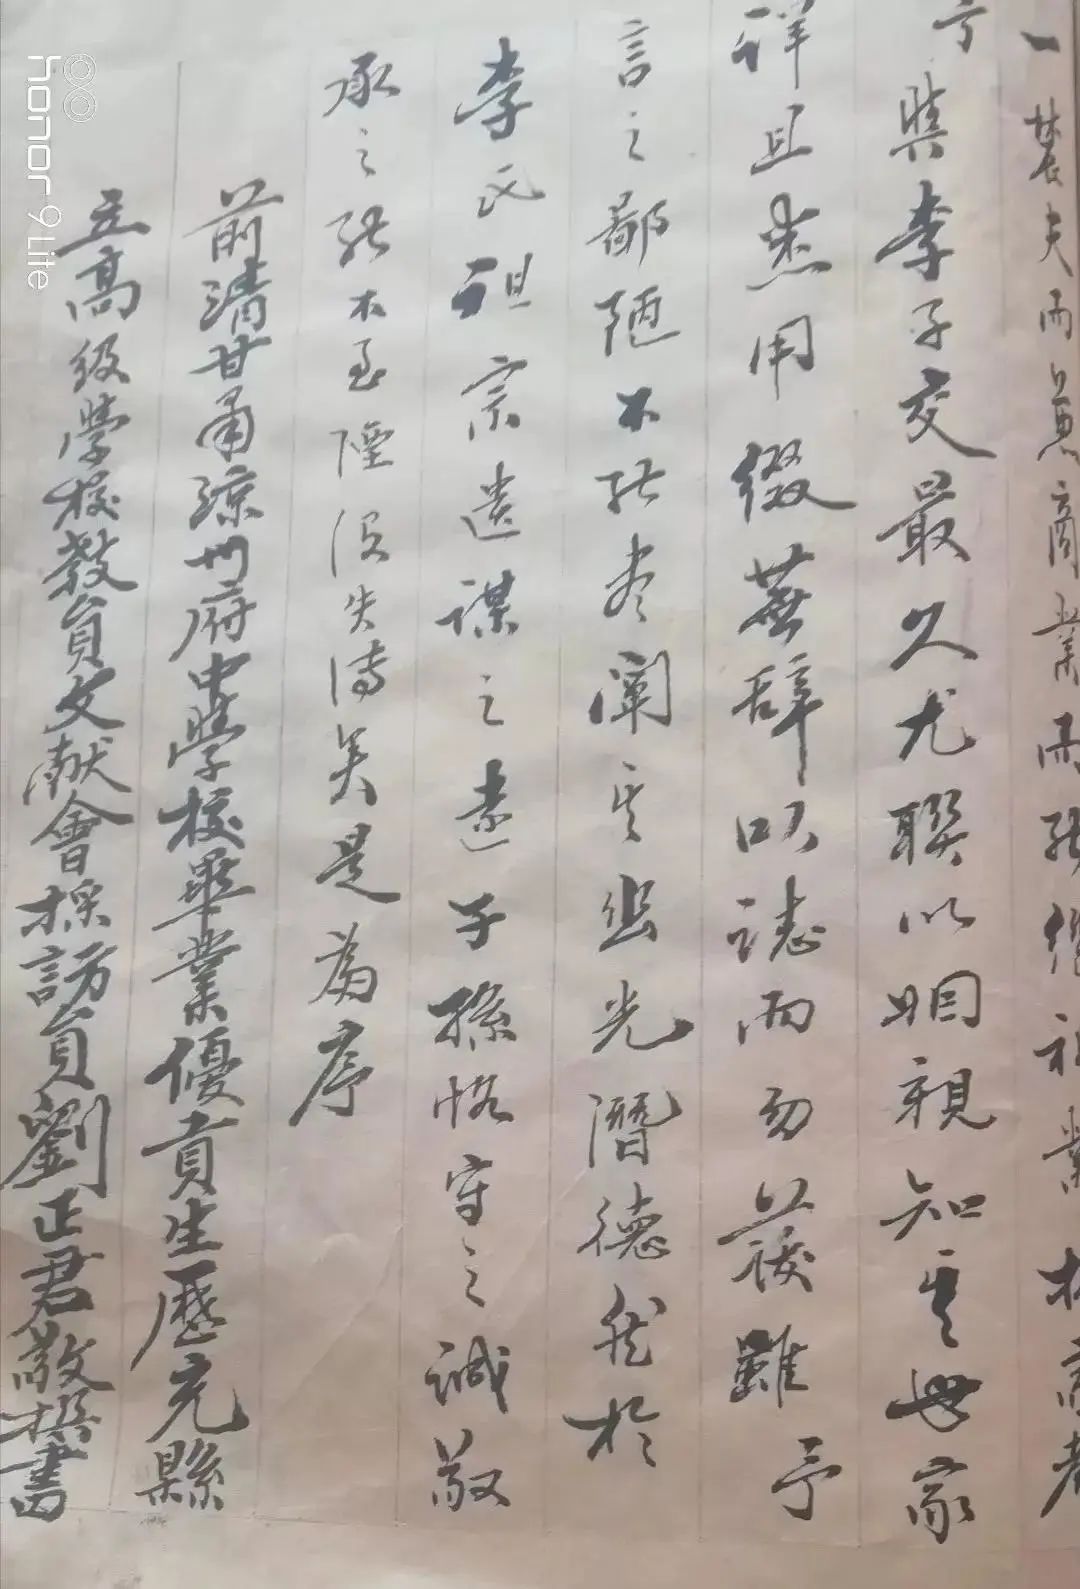 一農夫而兼商業而能繼祖業
予與李子交最久尤聯以姻親知其世家
詳且悉用綴蕪辭以誌而勿諼雖予
言之鄙陋不能盡闡其幽光潛德然於
李氏祖宗遺謀之遠子孫恪守之誠敬
承之能不至湮没失傳矣是為序
前清甘肅涼州府中學校畢業優貢生歷充縣
立高級學校教員文獻會採訪員劉正君敬撰書
honor 9 Lite